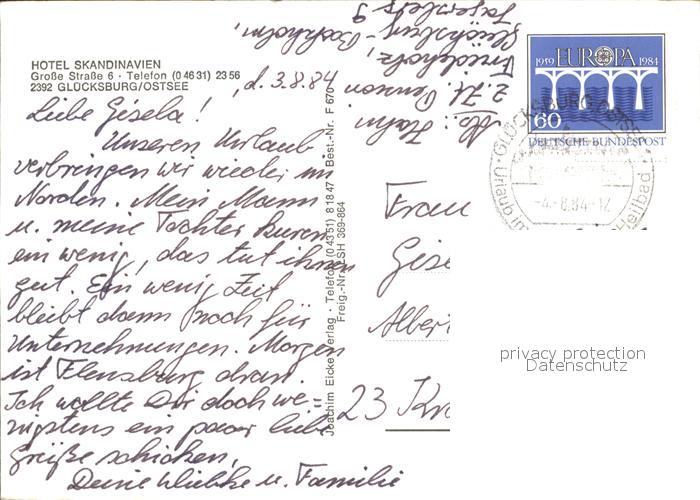 HOTEL SKANDINAVIEN
Große Straße 6 · Telefon (0 46 31) 23 56
2392 GLÜCKSBURG/OSTSEE
, d. 3.8.84
Liebe Gisela !
Unseren Urlaub
verbringen wir wieder im
Norden. Mein Mann
u. meine Tochter kuren
ein wenig, das tut ihnen
gut. Ein wenig Zeit
bleibt dann noch für
Unternehmungen. Morgen
ist Flensburg dran.
Ich wollte Dir doch we-
nigstens ein paar liebe
Grüße schicken,
Deine Wiebke u. Familie
Ab: Hahn
z. Zt. Pension
Friedholz,
Glücksburg-Bockholm,
9
Joachim Eicke Verlag · Telefon (0 43 51) 8 18 47 Best.-Nr. F 670
Freig.-Nr. SH 369-864
1959 EUROPA 1984
60
DEUTSCHE BUNDESPOST
GLÜCKSBURG, OSTSEE
-4.-8.84-12
Urlaub im
Heilbad
Frau
Gise
Alber
23 K
privacy protection
Datenschutz